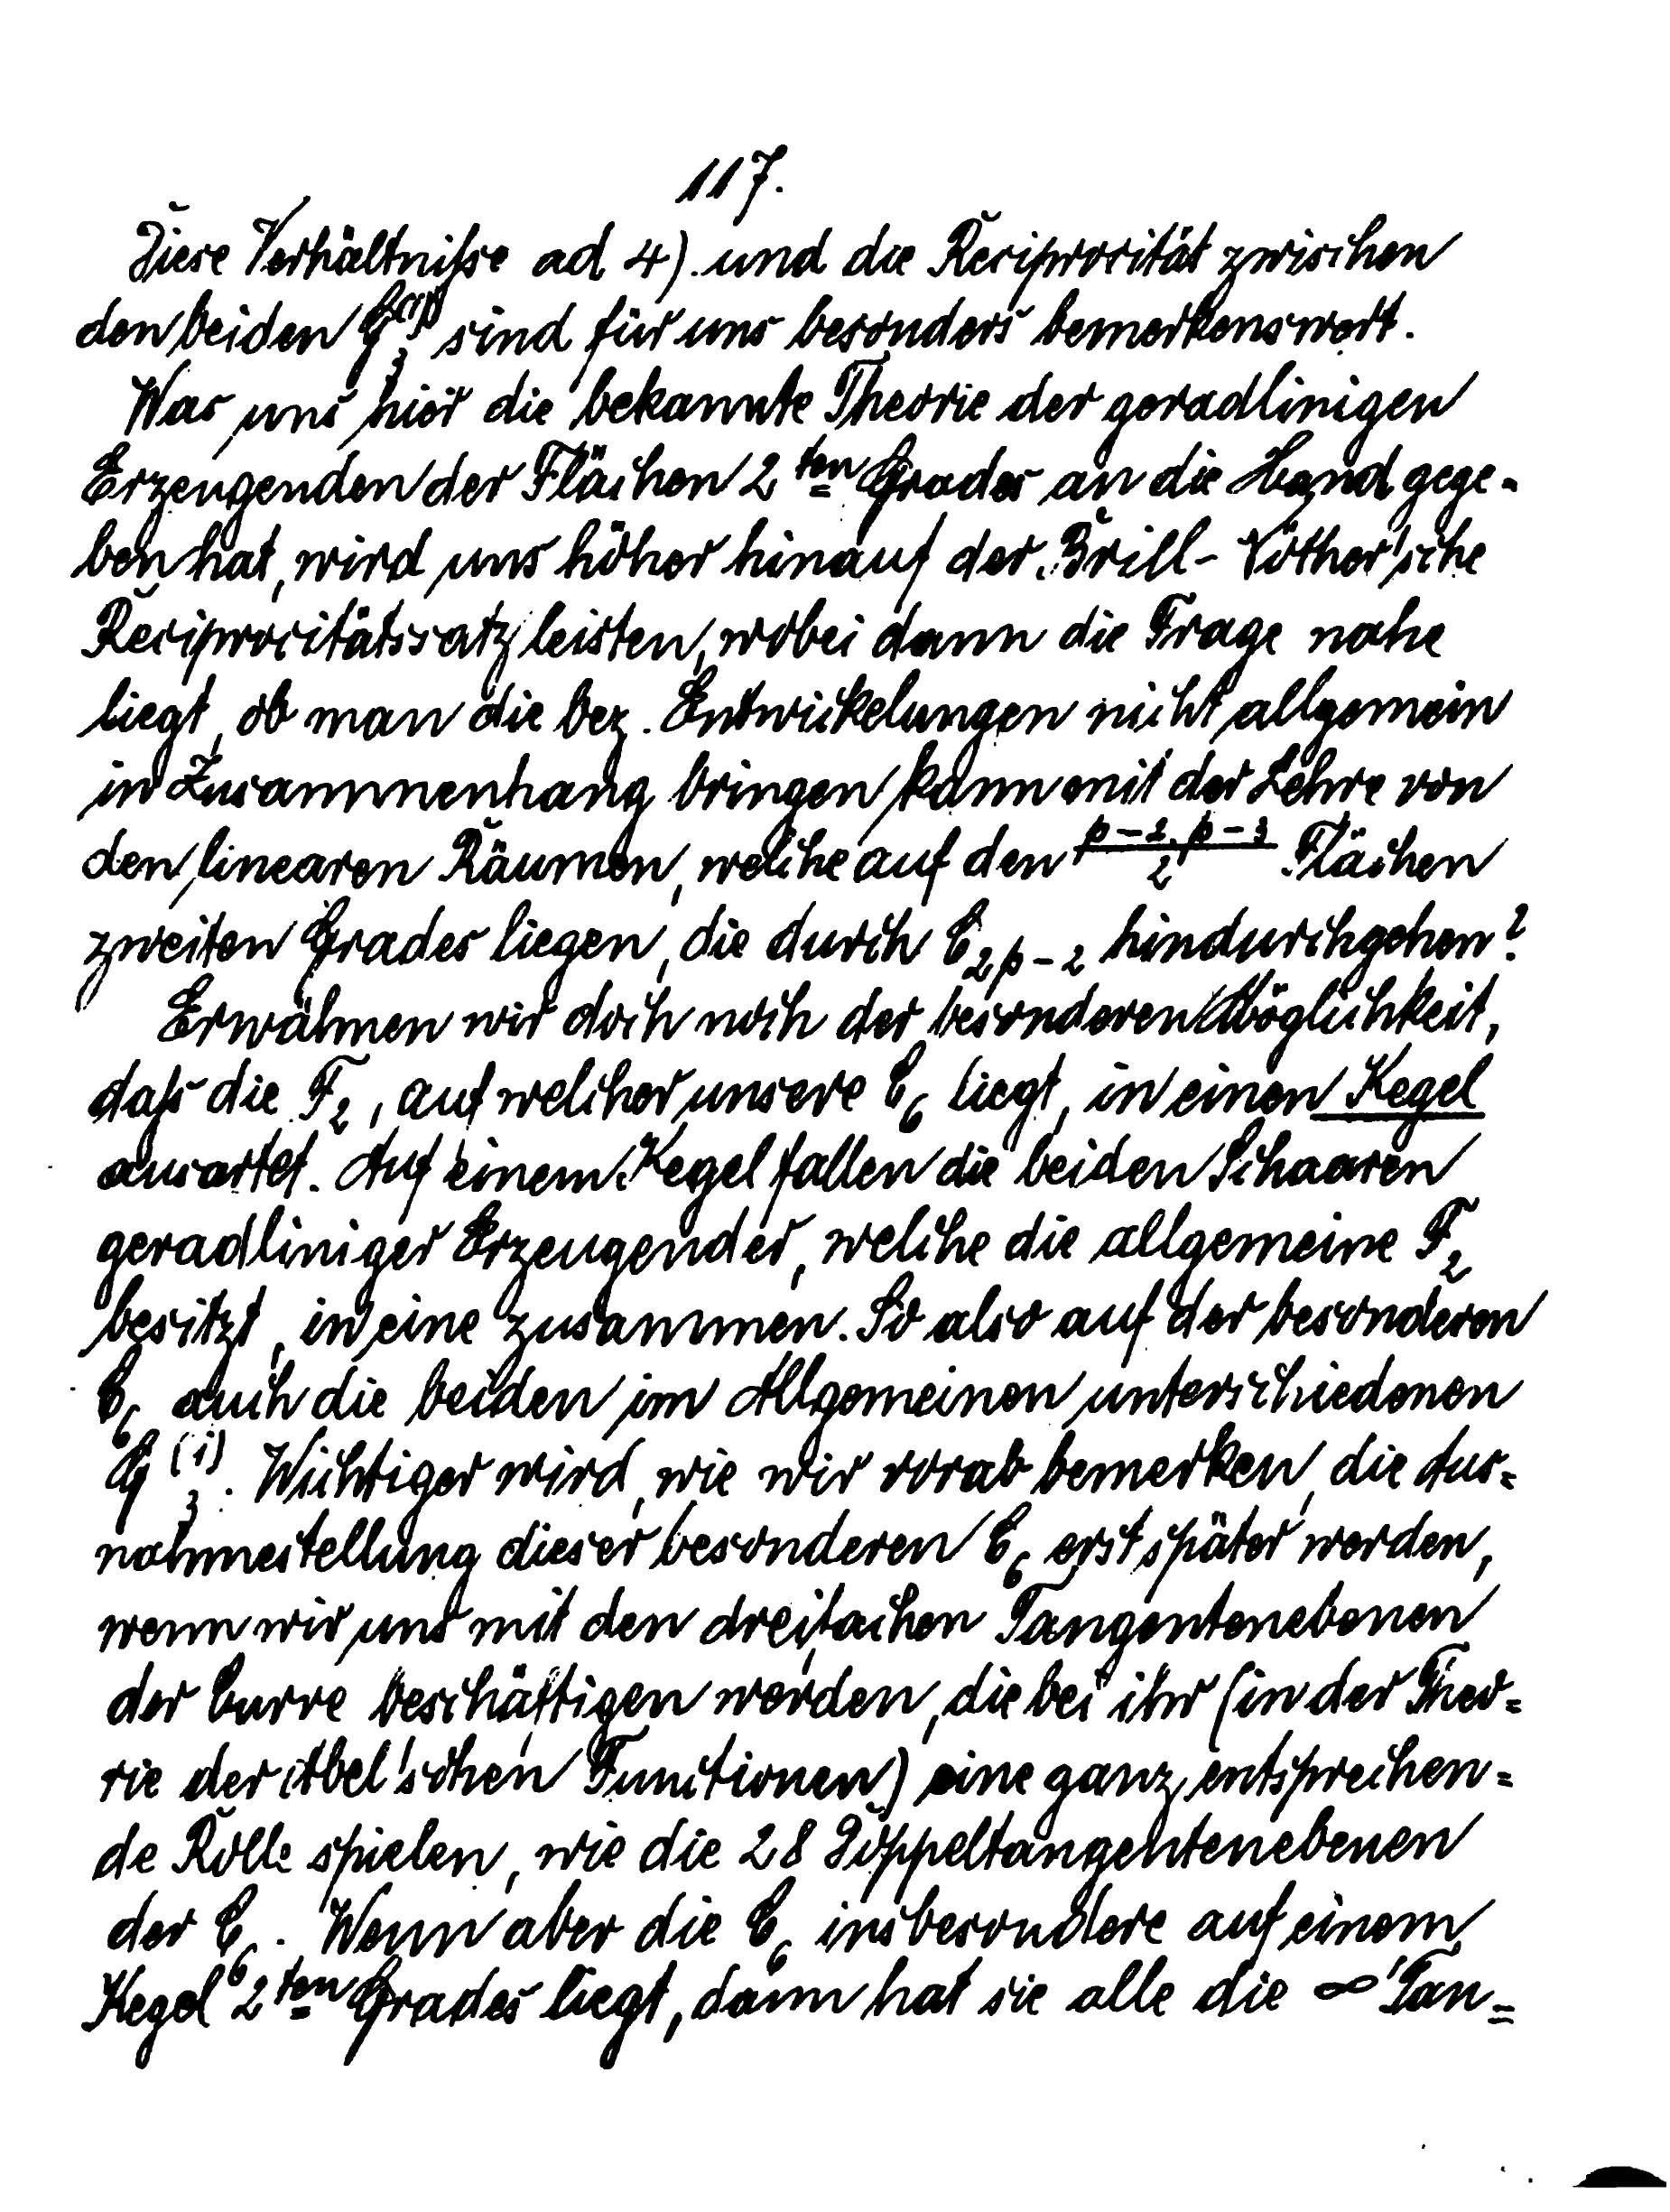 117.
Diese Verhältnisse ad 4). und die Reciprocität zwischen
den beiden G₃⁽¹⁾ sind für uns besonders bemerkenswert.
Was uns hier die bekannte Theorie der geradlinigen
Erzeugenden der Flächen 2ten Grades an die Hand gege-
ben hat, wird uns höher hinauf der Brill-Nöther'sche
Reciprocitätssatz leisten, wobei dann die Frage nahe
liegt, ob man die bez. Entwickelungen nicht allgemein
in Zusammnenhang bringen kann mit der Lehre von
den linearen Räumen, welche auf den (p-2.p-3)/2 Flächen
zweiten Grades liegen, die durch C₂ₚ₋₂ hindurchgehen?
Erwähnen wir doch noch der besonderen Möglichkeit,
daß die F₂, auf welcher unsere C₆ liegt, in einen Kegel
ausartet. Auf einem Kegel fallen die beiden Schaaren
geradliniger Erzeugender, welche die allgemeine F₂
besitzt, in eine zusammen. So also auf der besonderen
C₆ auch die beiden im Allgemeinen unterschiedenen
G₃⁽¹⁾. Wichtiger wird, wie wir vorab bemerken, die Aus-
nahmestellung dieser besonderen C₆ erst später werden,
wenn wir uns mit den dreifachen Tangentenebenen
der Curve beschäftigen werden, die bei ihr (in der Theo-
rie der Abel'schen Functionen) eine ganz entsprechen-
de Rolle spielen, wie die 28 Doppeltangentenebenen
der C₆. Wenn aber die C₆ insbesondere auf einem
Kegel 2ten Grades liegt, dann hat sie alle die ∞¹ Tan-